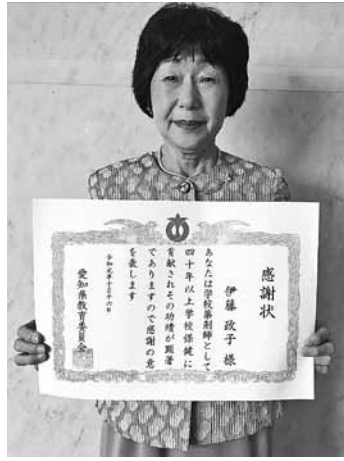 感謝状
伊藤 政子 様
あなたは学校薬剤師として
四十年以上学校保健に
貢献されその功績が顕著
でありますので感謝の意
を表します
令和元年十月二十六日
愛知県教育委員会